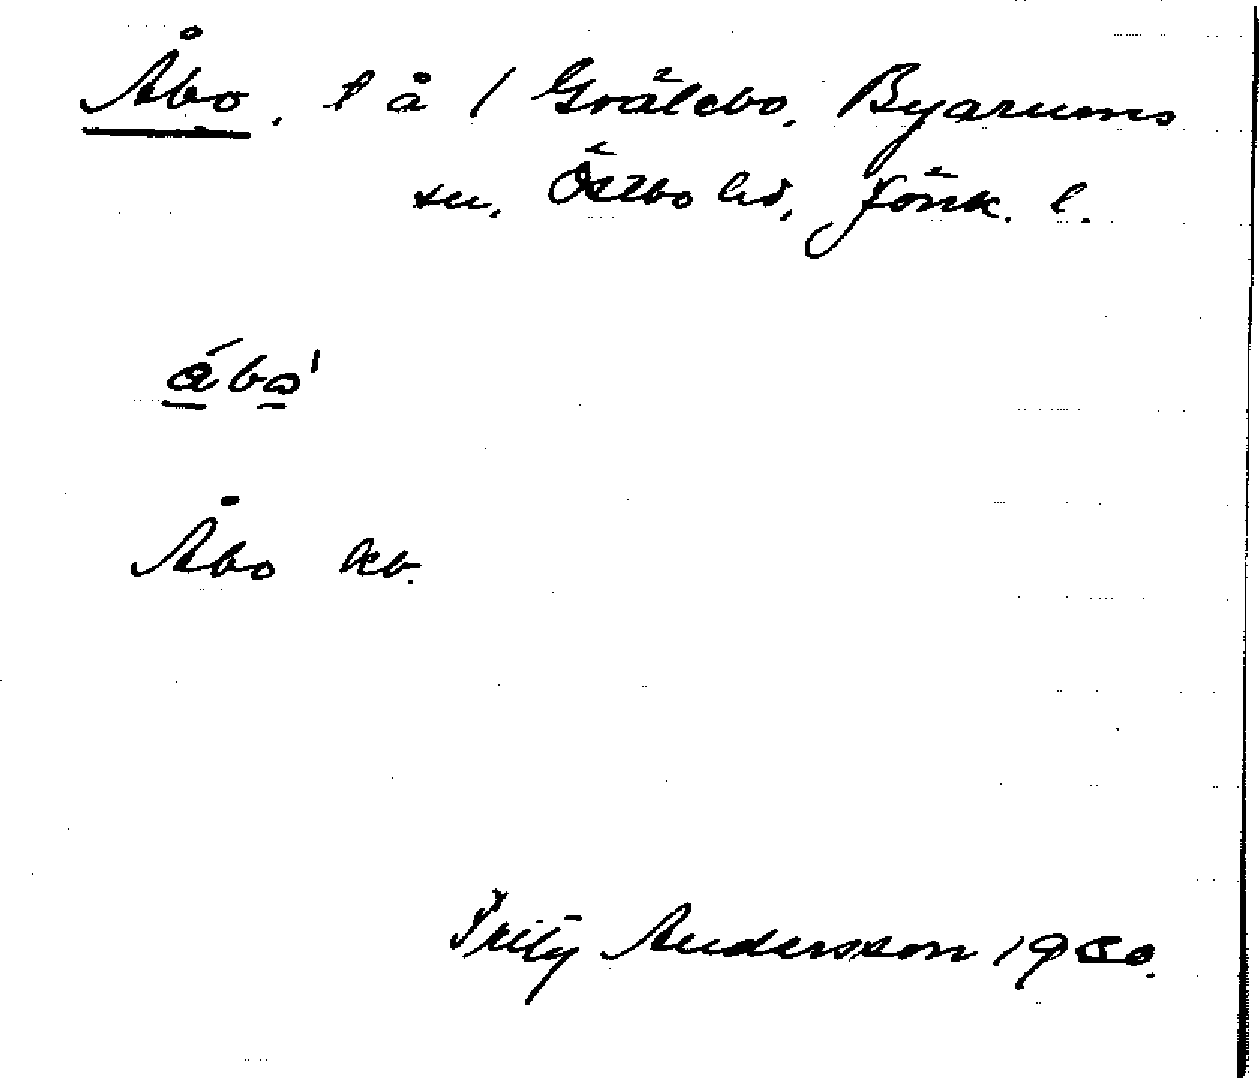 Åbo, l å / Grälebo, Byarums
sn, Östbo hd, Jönk. l.
ábo'
Åbo kb.
Fritz Andersson 1930.